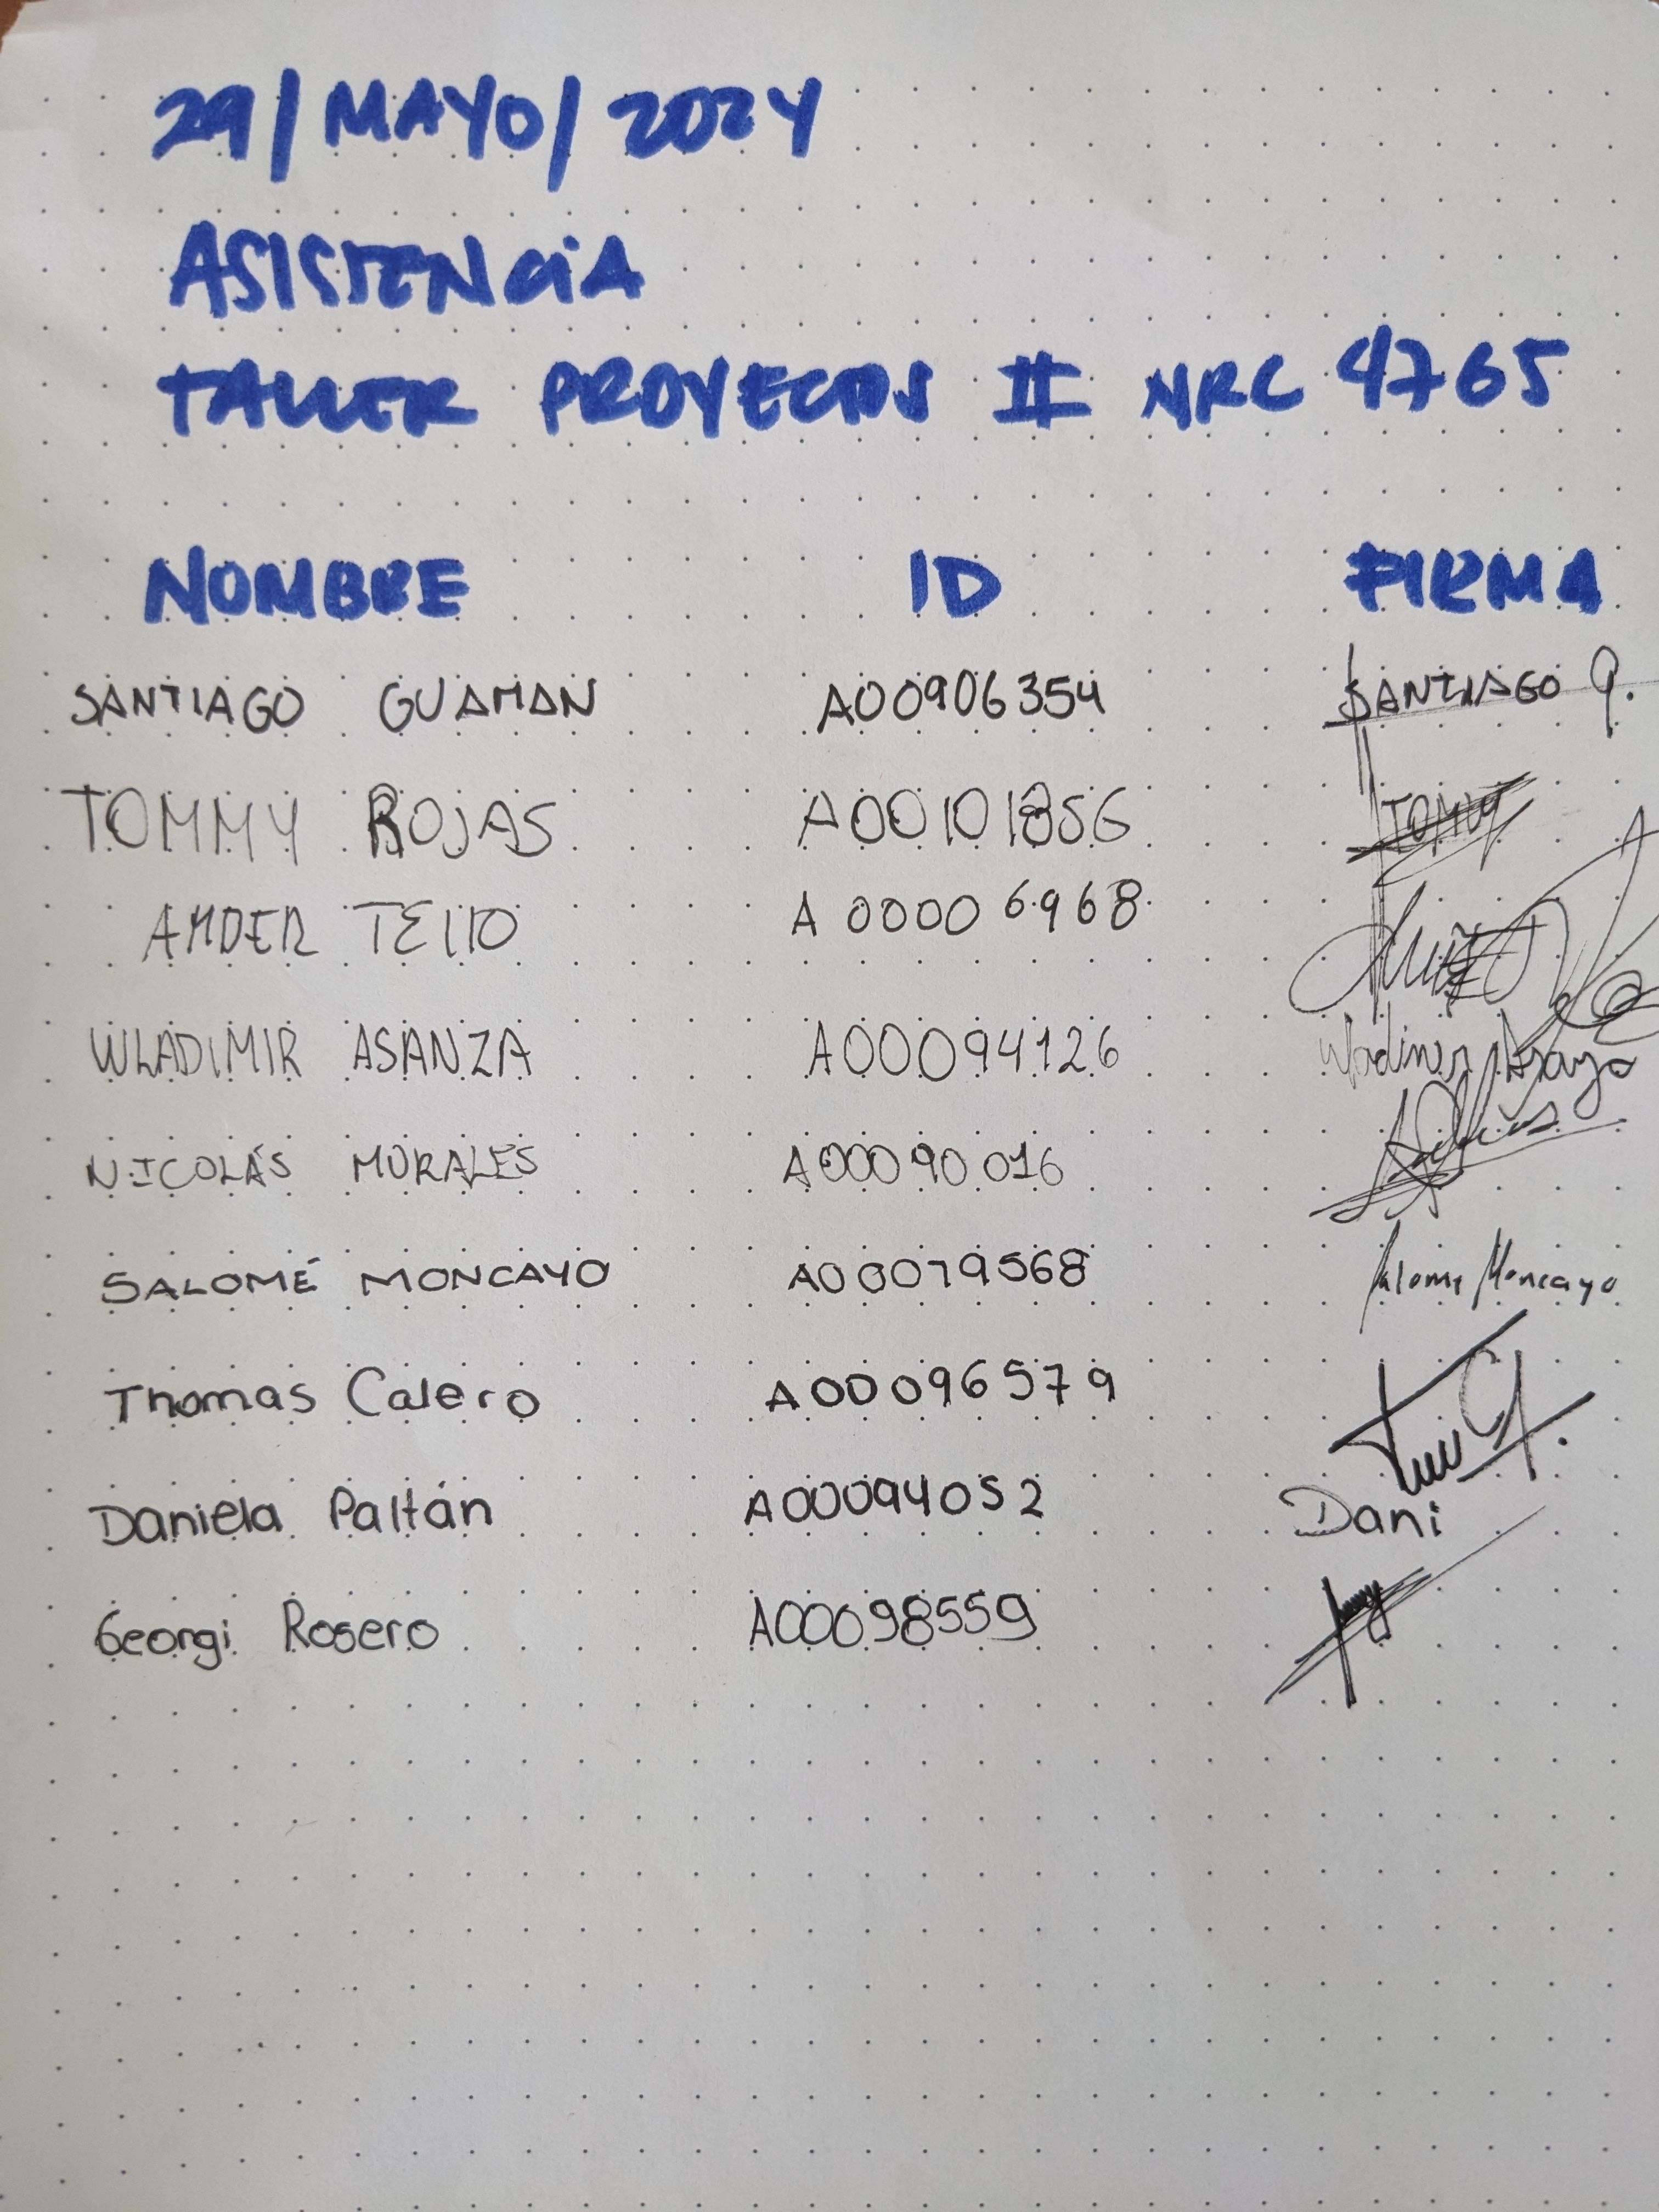 29/MAYO/2024
ASISTENCIA
TALLER PROYECTOS II NRC 4765
NOMBRE ID FIRMA
SANTIAGO GUAMAN A00906354 SANTIAGO G.
TOMMY ROJAS A00101856 TOMMY
TEJIO A00006968
WLADIMIR ASANZA A00094126
NICOLÁS MORALES A00090016
SALOMÉ MONCAYO A00079568 Salome Moncayo
Thomas Calero A00096579
Daniela Paltán A00094052 Dani
Georgi Rosero A00098559